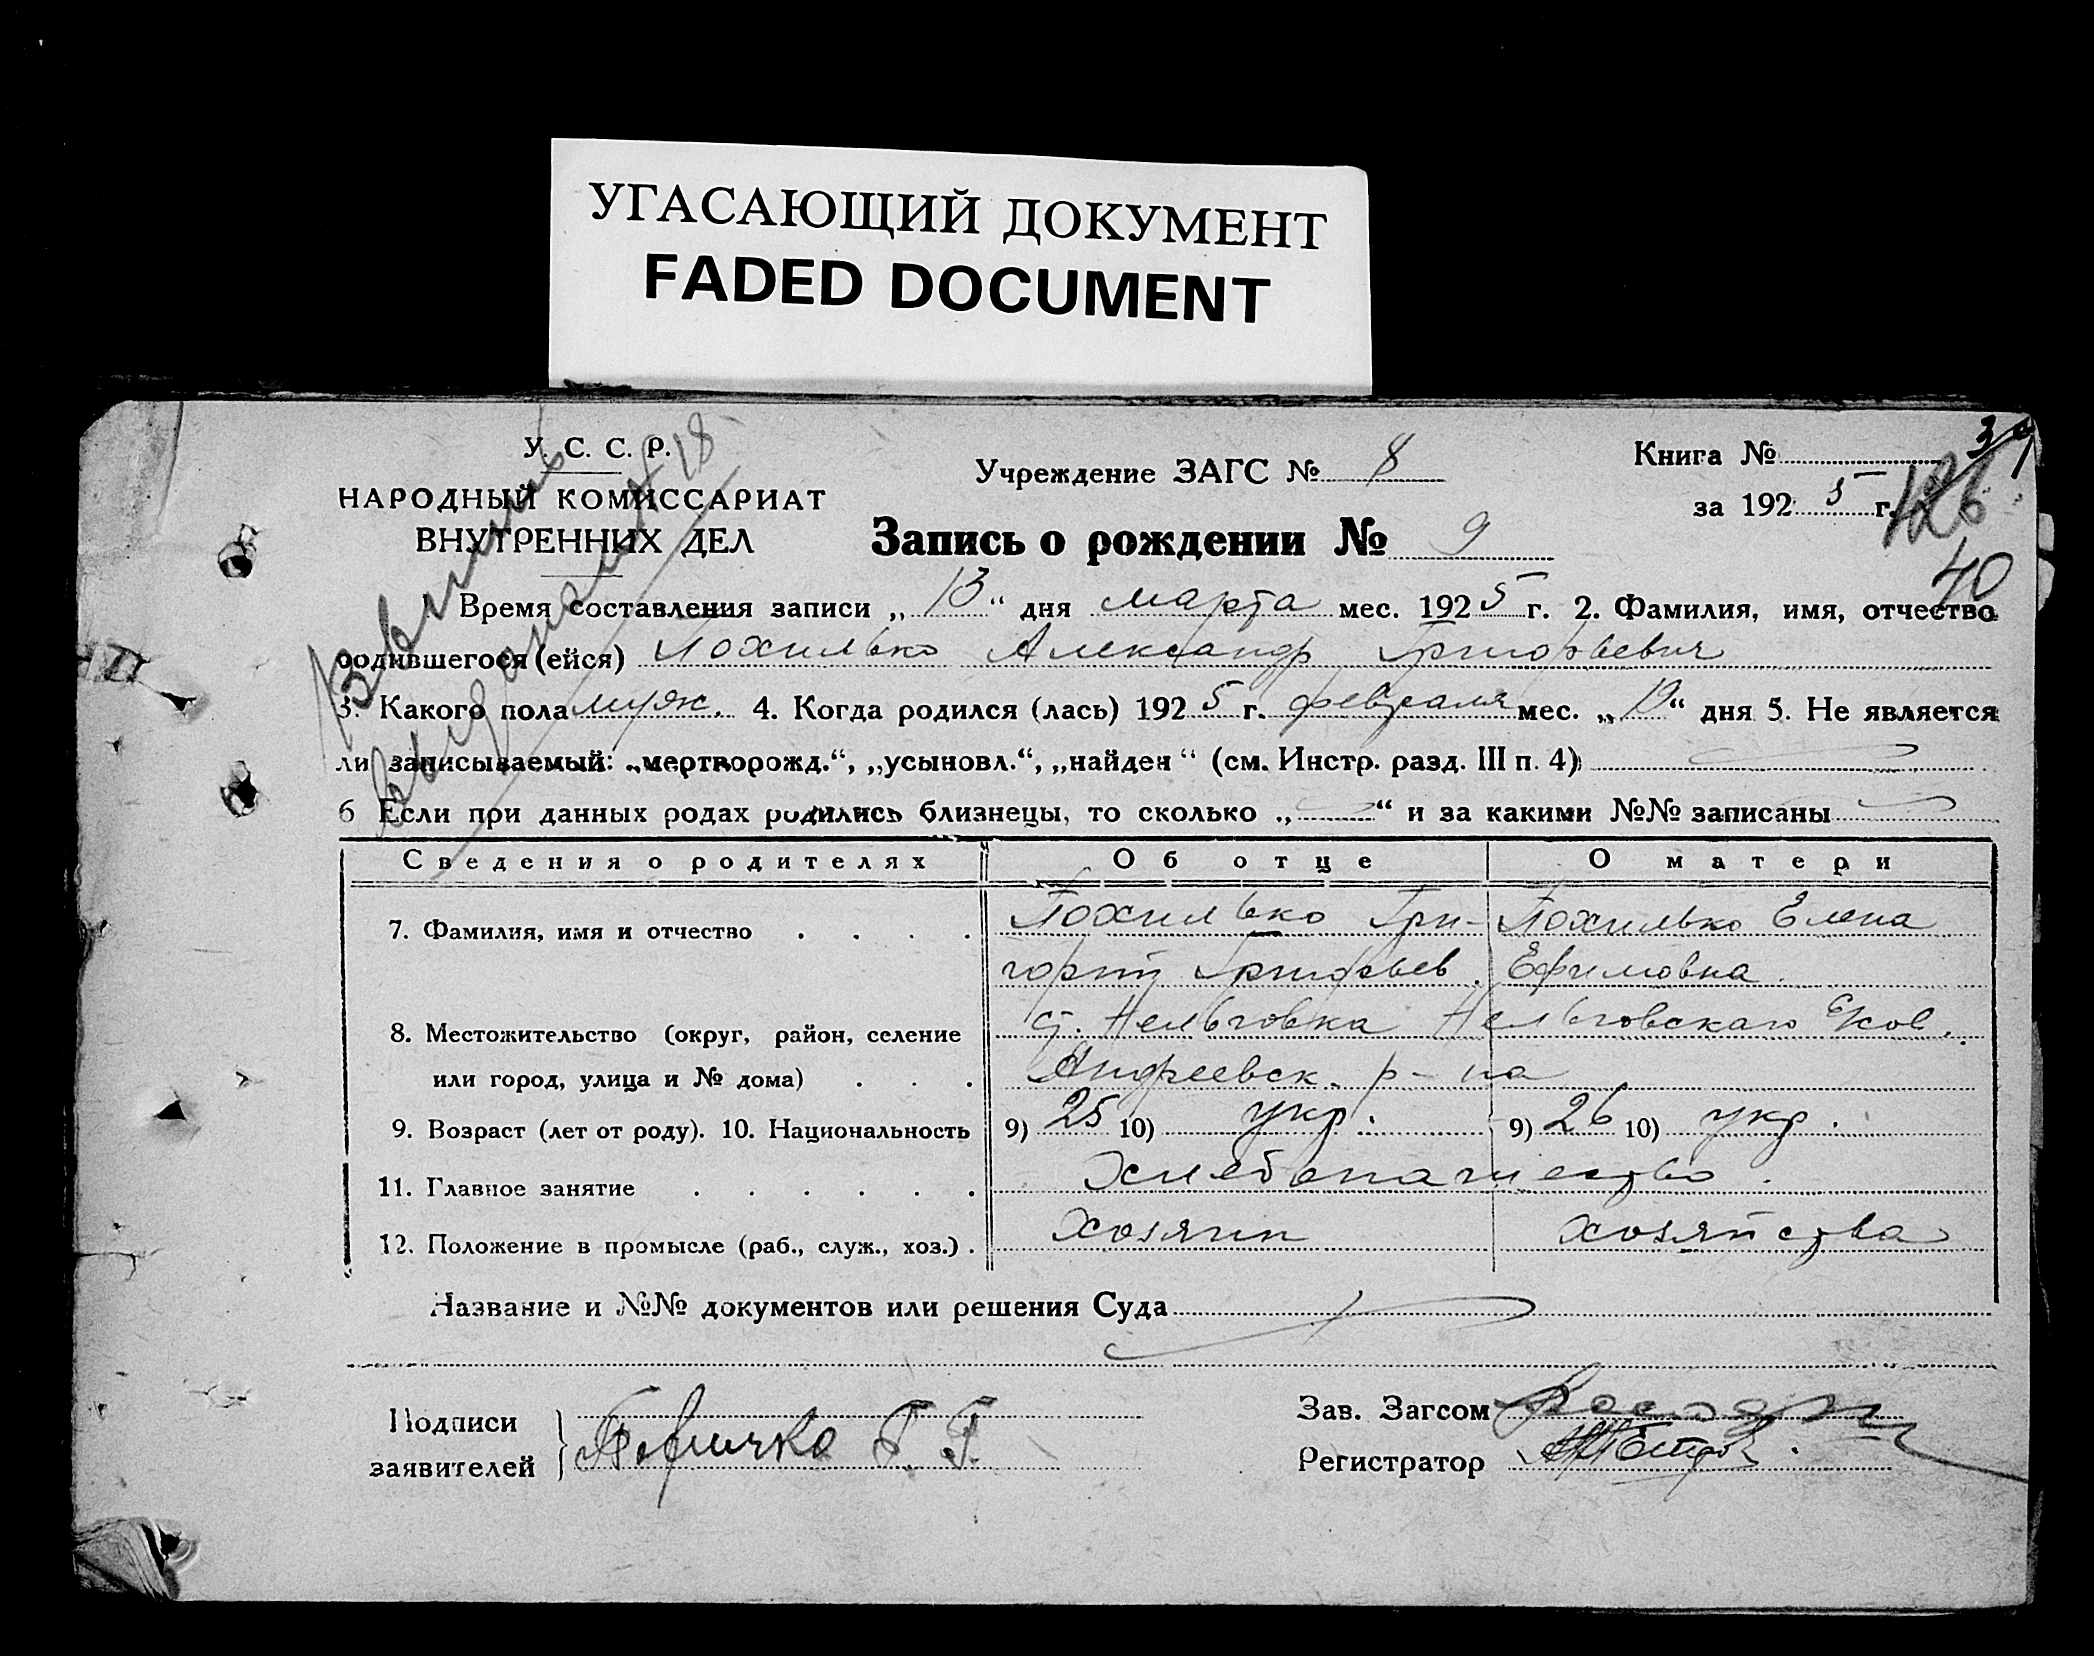 УГАСАЮЩИЙ ДОКУМЕНТ
FADED DOCUMENT
У. С. С. Р.
НАРОДНЫЙ КОМИССАРИАТ
ВНУТРЕННИХ ДЕЛ
Учреждение ЗАГС № 8
Книга №
за 1925 г.
126
40
Запись о рождении № 9
Время составления записи „13“ дня марта мес. 1925 г. 2. Фамилия, имя, отчество
родившегося (ейся) Похилько Александр Григорьевич
3. Какого пола муж. 4. Когда родился (лась) 1925 г. февраля мес. „19“ дня 5. Не является
ли записываемый: „мертворожд.“, „усыновл.“, „найден“ (см. Инстр. разд. III п. 4)
6 Если при данных родах родились близнецы, то сколько „ “ и за какими №№ записаны
Сведения о родителях Об отце О матери
7. Фамилия, имя и отчество . . . . Похилько Гри- Похилько Елена
горий Григорьев. Ефимовна.
8. Местожительство (округ, район, селение с. Нельговка Нельговскаго
или город, улица и № дома) . . . Андреевск. р-на
9. Возраст (лет от роду). 10. Национальность 9) 25 10) укр. 9) 26 10) укр.
11. Главное занятие . . . . . . Хлебопашество.
12. Положение в промысле (раб., служ., хоз.) . хозяин хозяйства
Название и №№ документов или решения Суда
Подписи
заявителей Г. Г.
Зав. Загсом
Регистратор